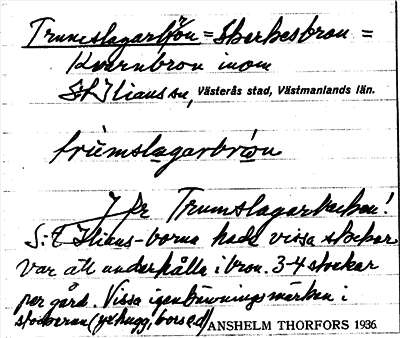 Trumslagarbron = Skerbesbron =
Kvarnbron inom
S:t Ilians sn, Västerås stad, Västmanlands län.
trùmslagarbròn
Jfr Trumslagarbacken!
S:t Ilians-borna hade vissa stockar
var att underhålla i bron. 3-4 stockar
per gård. Vissa igenkänningsmärken i
stockarna (yxhugg, borrad) ANSHELM THORFORS 1936.